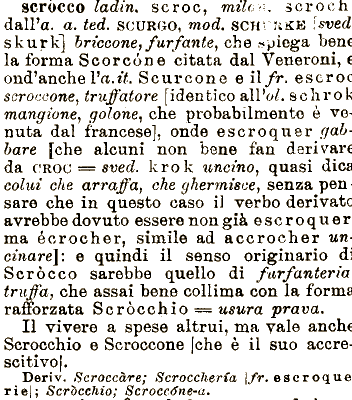 scròcco ladin. scroc, scroch
dall'a. a. ted. SCURGO, mod. [sved.
skurk] briccone, furfante, che spiega bene
la forma Scorcóne citata dal Veneroni, e
ond'anche l'a.it. Scurcone e il fr. escroc
scroccone, truffatore [identico all'ol. schrok
mangione, golone, che probabilmente è ve-
nuta dal francese], onde escroquer gab-
bare [che alcuni non bene fan derivare
da CROC = sved. krok uncino, quasi dica
colui che arraffa, che ghermisce, senza pen-
sare che in questo caso il verbo derivato
avrebbe dovuto essere non già escroquer
ma écrocher, simile ad accrocher un-
cinare]: e quindi il senso originario di
Scròcco sarebbe quello di furfanteria
truffa, che assai bene collima con la forma
rafforzata Scròcchio = usura prava.
Il vivere a spese altrui, ma vale anche
Scrocchio e Scroccone [che è il suo accre-
scitivo].
Deriv. Scroccàre; Scroccherìa [fr. escroque
rie]; Scròcchio; Scroccóne-a.